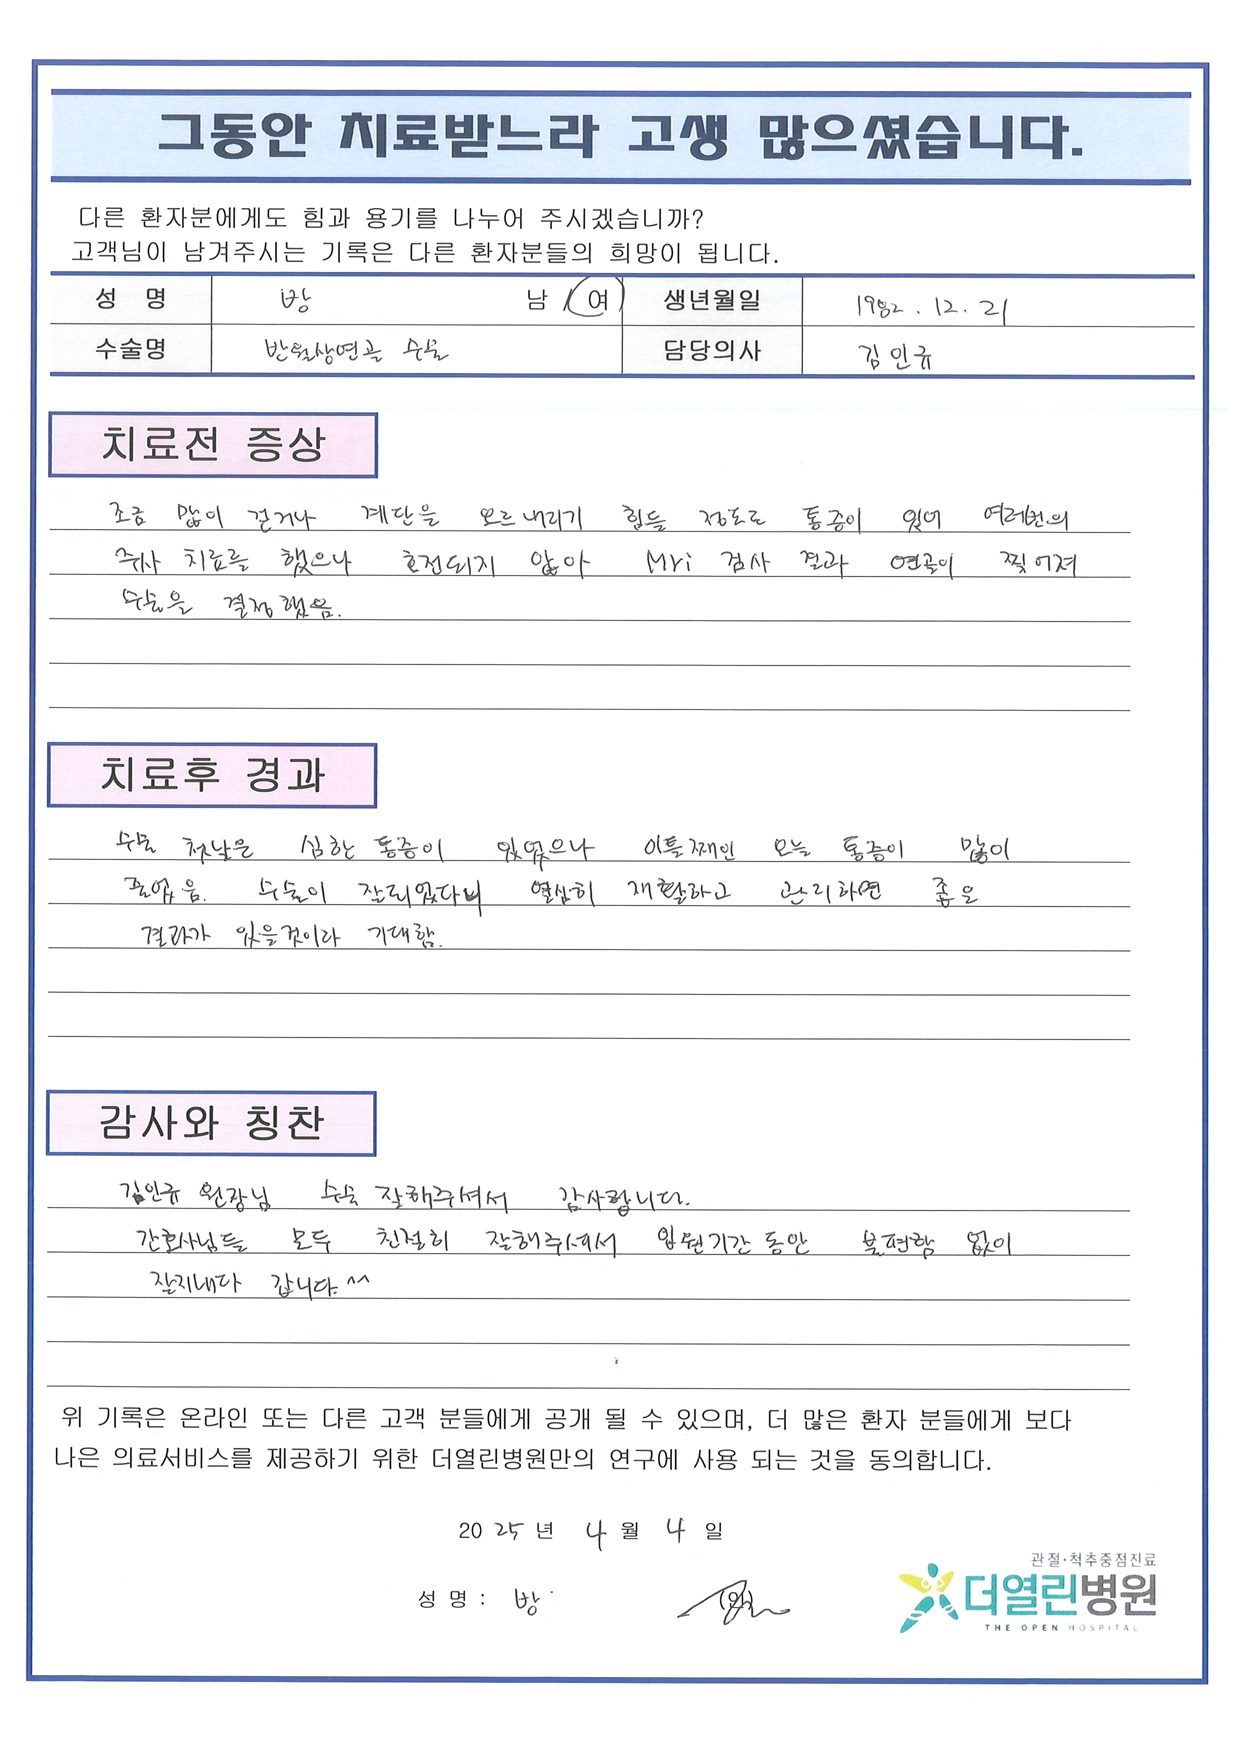 그동안 치료받느라 고생 많으셨습니다.
다른 환자분에게도 힘과 용기를 나누어 주시겠습니까?
고객님이 남겨주시는 기록은 다른 환자분들의 희망이 됩니다.
성 명 방 남 / 여 생년월일 1982. 12. 21
수술명 반월상연골 수술 담당의사 김인규
치료전 증상
조금 많이 걷거나 계단을 오르내리기 힘들 정도로 통증이 있어 여러번의
주사 치료를 했으나 호전되지 않아 Mri 검사 결과 연골이 찢어져
수술을 결정했음.
치료후 경과
수술 첫날은 심한 통증이 있었으나 이틀째인 오늘 통증이 많이
줄었음. 수술이 잘되었다니 열심히 재활하고 관리하면 좋은
결과가 있을것이라 기대함.
감사와 칭찬
김인규 원장님 수술 잘해주셔서 감사합니다.
간호사님들 모두 친절히 잘해주셔서 입원기간 동안 불편함 없이
잘지내다 갑니다.^^
위 기록은 온라인 또는 다른 고객 분들에게 공개 될 수 있으며, 더 많은 환자 분들에게 보다
나은 의료서비스를 제공하기 위한 더열린병원만의 연구에 사용 되는 것을 동의합니다.
2025년 4월 4일
성 명 : 방 (인)
관절·척추중점진료
더열린병원
THE OPEN HOSPITAL